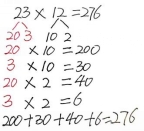 23 × 12 = 276
20 3 10 2
20 × 10 = 200
3 × 10 = 30
20 × 2 = 40
3 × 2 = 6
200+30+40+6=276